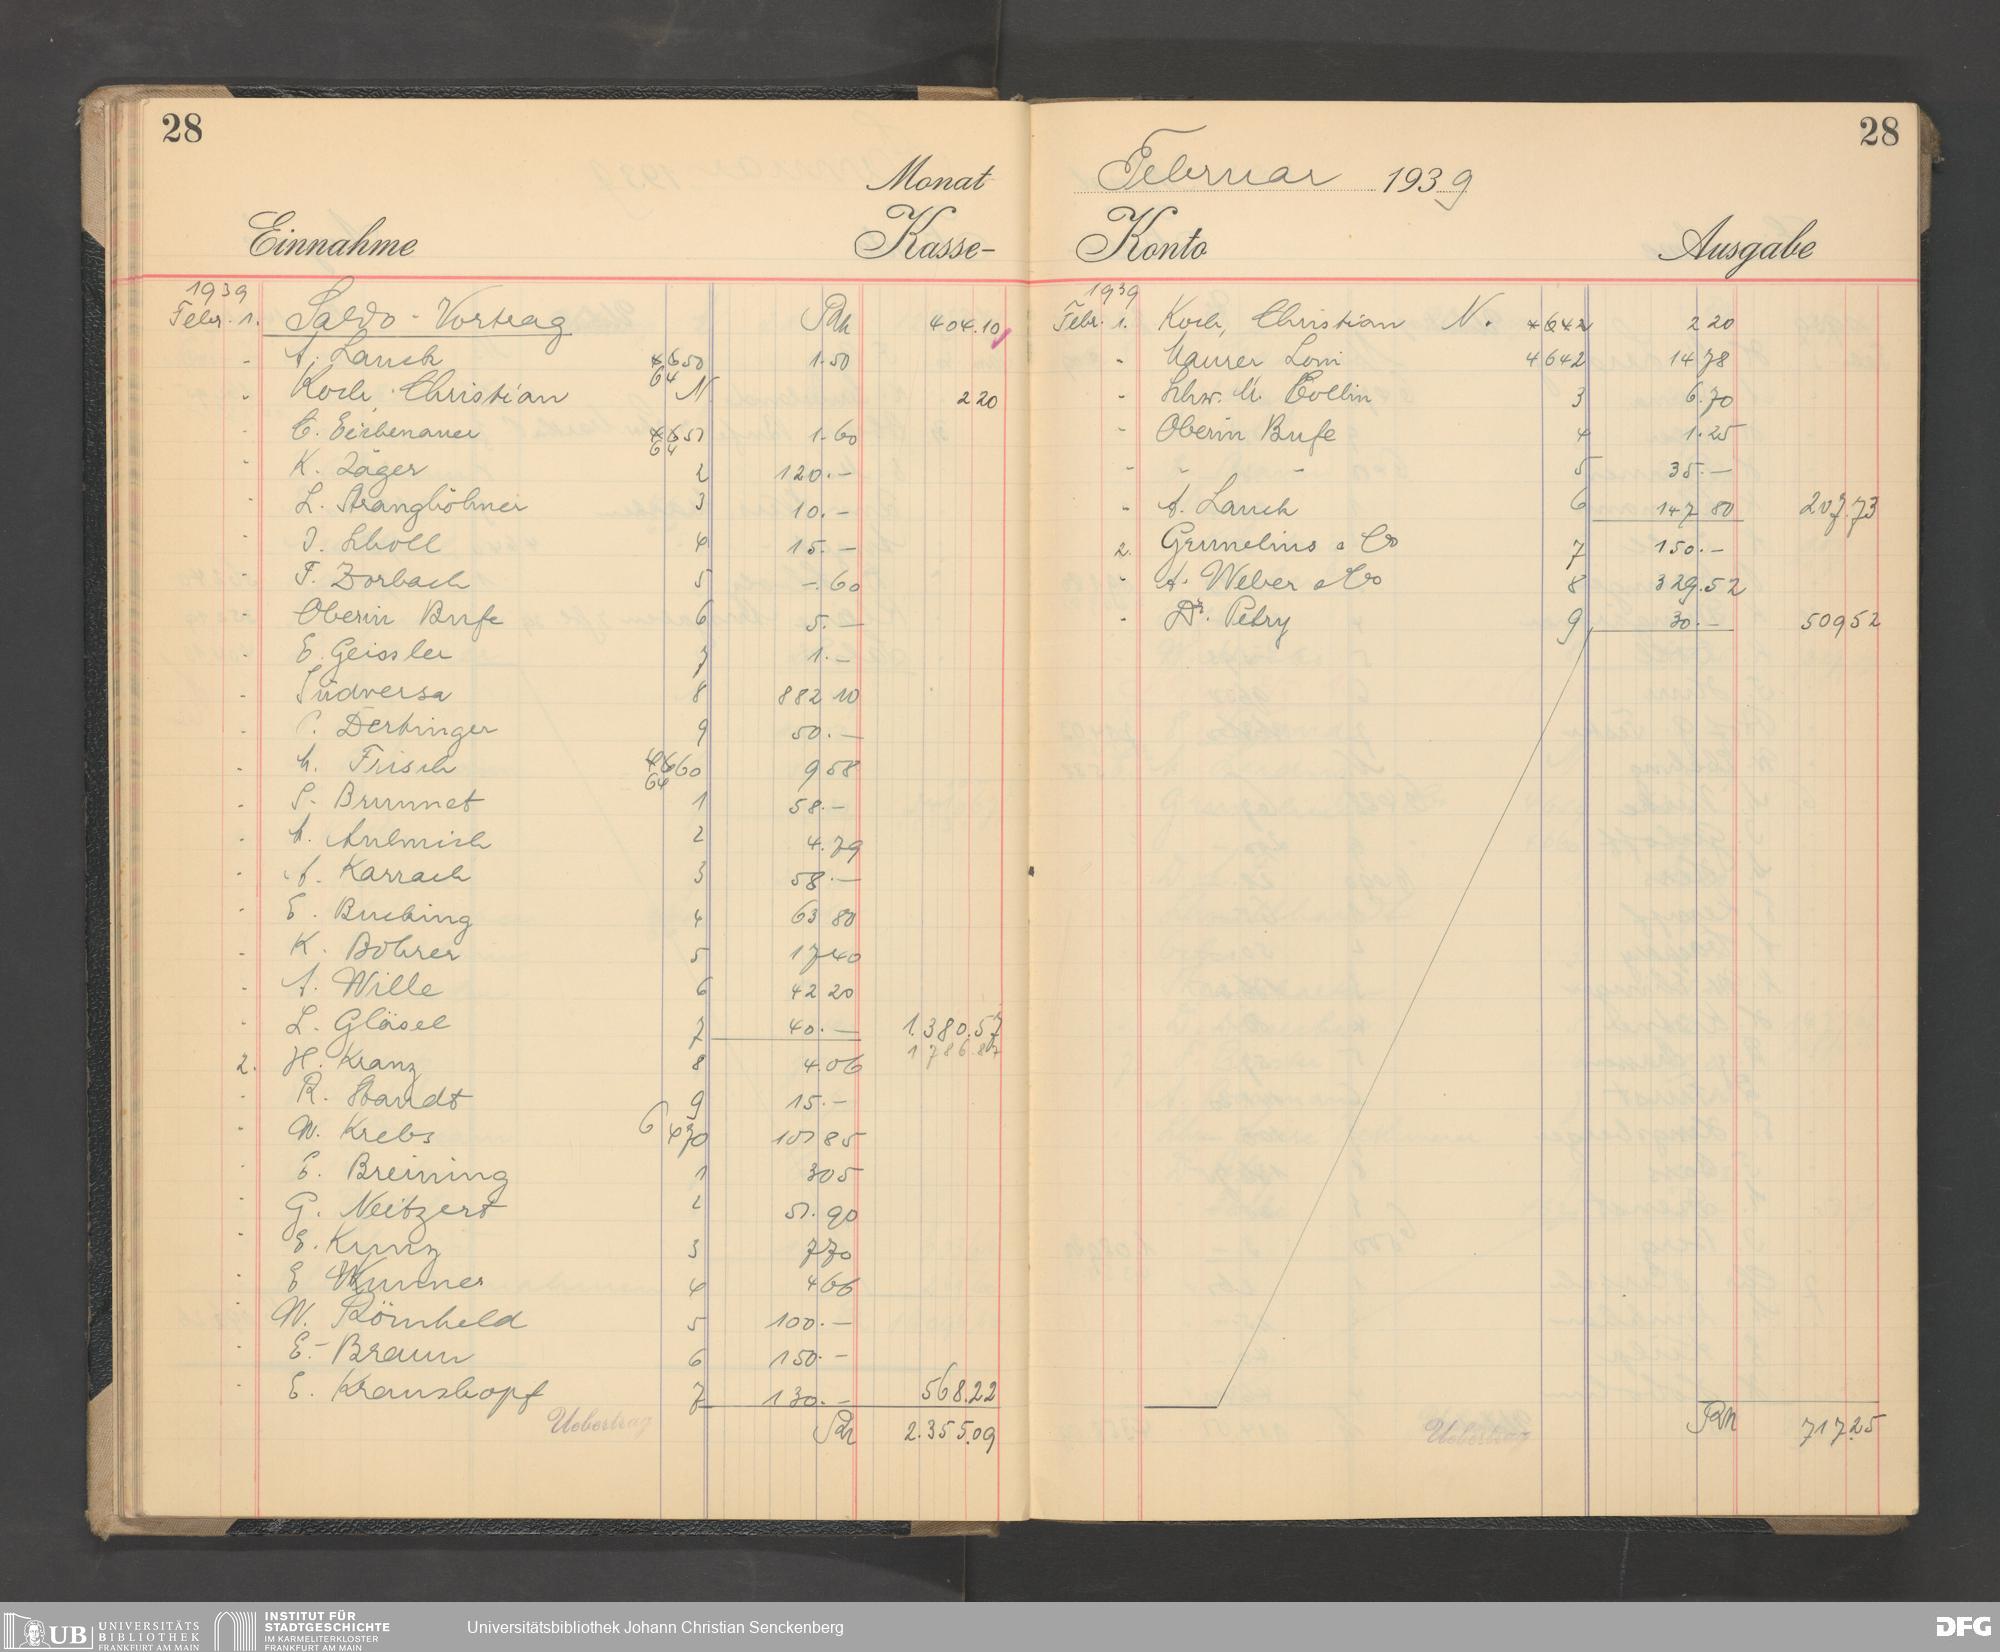 28
Monat
Einnahme Kasse-
1939
Febr. 1. Saldo-Vortrag RM 404.10
- A. Lauck 4650 64 1.50
- Koch, Christian N 2 20
- E. Eichenauer 4651 64 1.60
- K. Jäger 2 120.-
- L. Strangböhner 3 10.-
- J. Scholl 4 15.-
- F. Zorbach 5 -.60
- Oberin Bufe 6 5.-
- E. Geissler 7 1.-
- Südversa 8 882 10
- Dertinger 9 50.-
- Frisch 4660 64 9 58
- Brunnet 1 58.-
- A. Aulmich 2 4.79
- A. Karrach 3 58.-
- E. Bucking 4 63 80
- K. Bohrer 5 17 40
- A. Wille 6 42 20
- L. Gläsel 7 40.- 1.380.57
1786.87
2. H. Kranz 8 4.06
- R. Standt 9 15.-
- W. Krebs 6470 101 85
- E. Breining 1 3 05
- G. Neitzert 2 51.90
- E. Kunz 3 7 70
- E. Wunner 4 4 66
- W. Römheld 5 100.-
- E. Braun 6 150.-
- E. Krauskopf 7 130.- 568.22
Uebertrag RM 2.355.09
28
Februar 1939
Konto Ausgabe
1939
Febr. 1. Koch, Christian N. 4642 2 20
- Maurer Loni 4642 14 78
- Schw. M. Collin 3 6.70
- Oberin Bufe 4 1.25
- " - 5 35.-
- A. Lauck 6 147 80 207.73
2. Grunelius & Co 7 150.-
- A. Weber & Co 8 329.52
- Dr. Petry 9 30.- 509 52
Uebertrag RM 717.25
UB UNIVERSITÄTS BIBLIOTHEK FRANKFURT AM MAIN
INSTITUT FÜR STADTGESCHICHTE IM KARMELITERKLOSTER FRANKFURT AM MAIN
Universitätsbibliothek Johann Christian Senckenberg
DFG